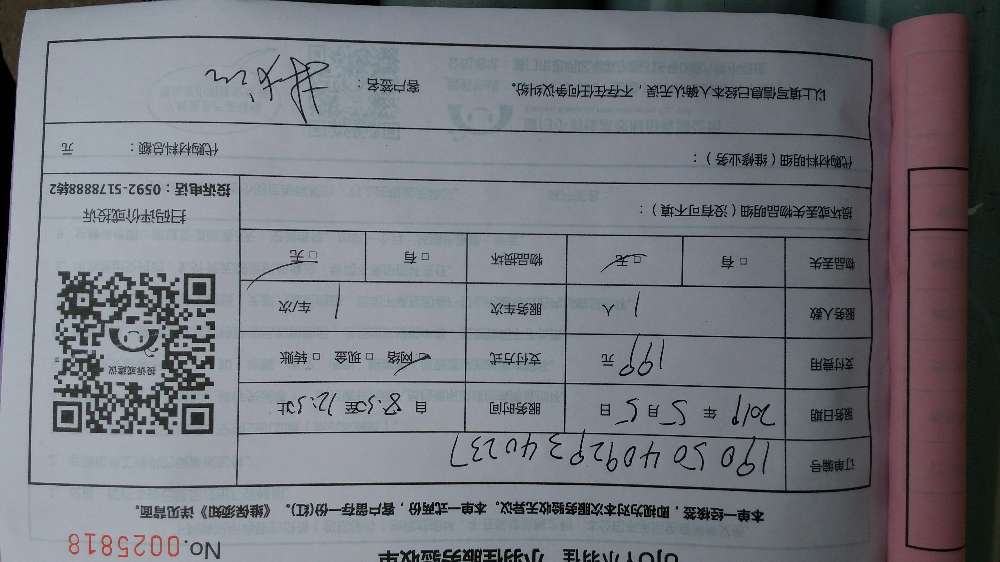 小羽佳 小羽佳服务验收单
No.0025818
本单一经核签，即视为对本次服务验收无异议。本单一式两份，客户留存一份(红)。《维保须知》详见背面。
订单编号 19050409293440237
服务日期 2019 年 5 月 5 日 服务时间 自 8:30 至 12:30 止
支付费用 199 元 支付方式 □网络 □现金 □转账
服务人数 1 人 服务车次 1 车/次
物品丢失 □有 □无 物品损坏 □有 □无
损坏或丢失物品明细（没有可不填）：
投诉或建议
扫码评价或投诉
投诉电话：0592-5178888转2
代购材料明细（维修业务）： 代购材料总额： 元
以上填写信息已经本人确认无误，不存在任何争议纠纷。 客户签名：